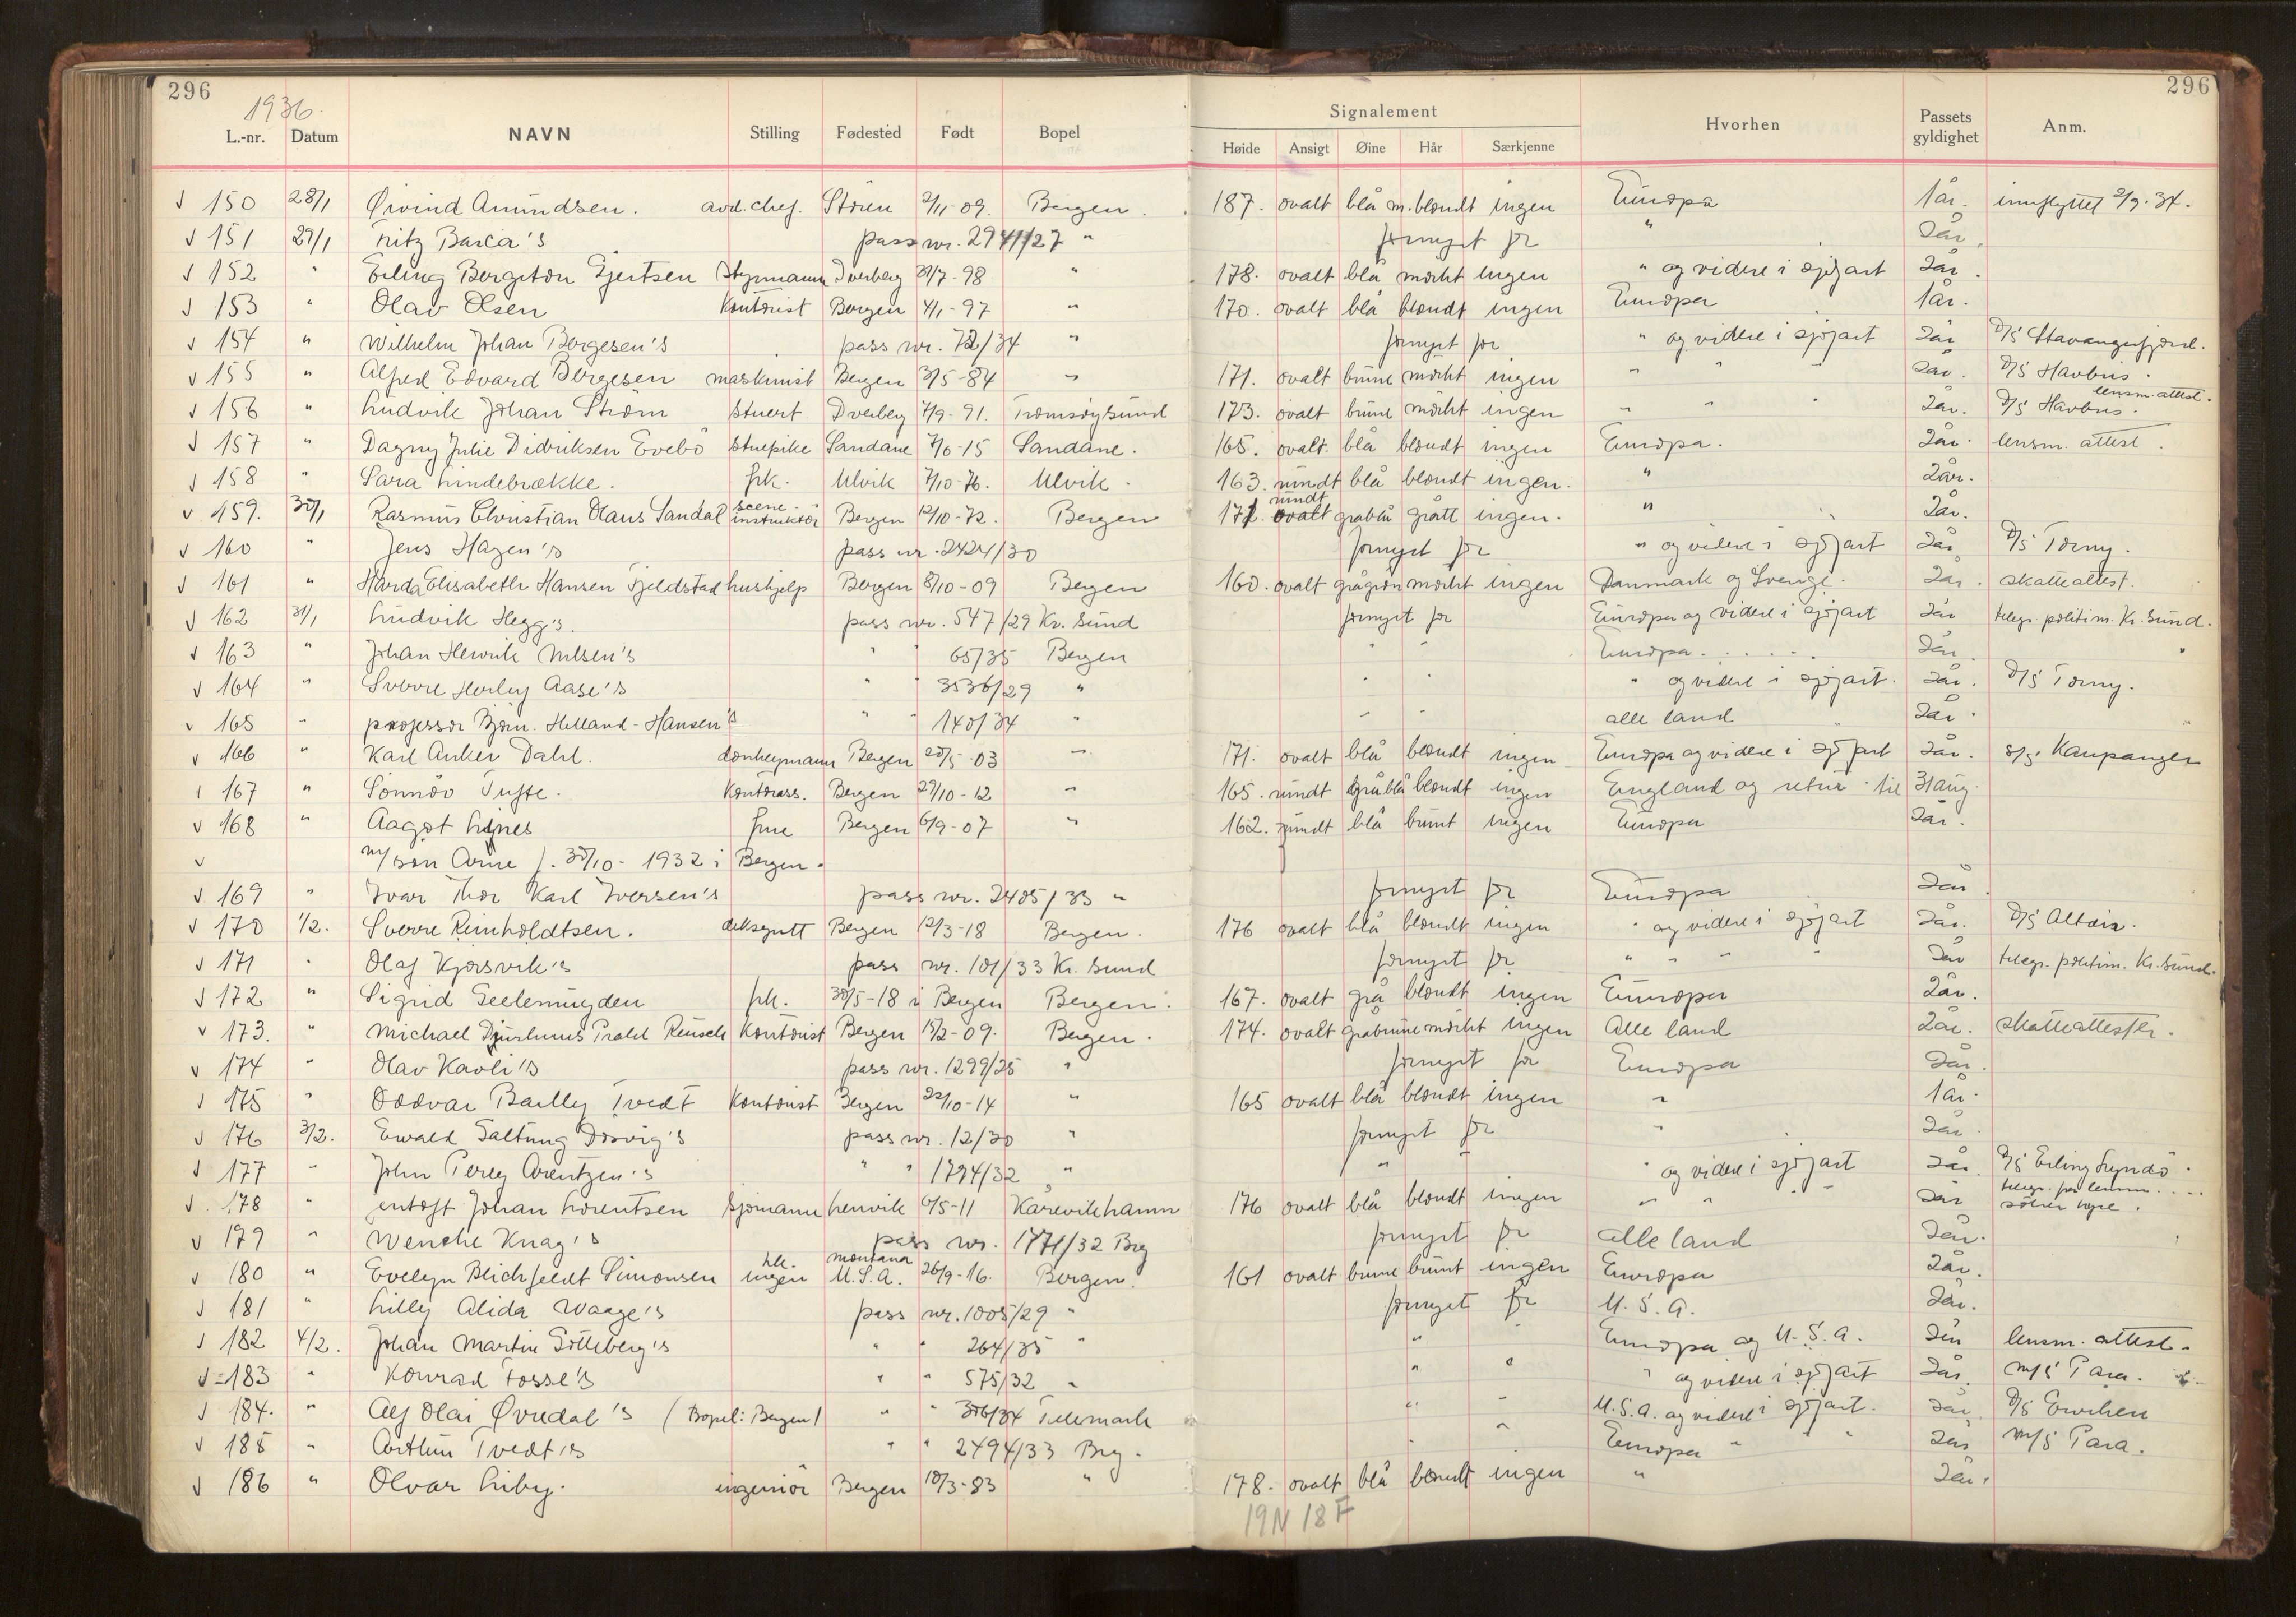 296 296
1936.
L.-nr. Datum NAVN Stilling Fødested Født Bopel Signalement Hvorhen Passets gyldighet Anm.
Høide Ansigt Øine Hår Særkjenne
√ 150 28/1 Øivind Amundsen. avd. chef. Støren 2/11-09. Bergen. 187. ovalt blå m.blondt ingen Europa 1 år. innflyttet 2/9-34.
√ 151 29/1 Fritz Barca's pass nr. 2941/27 " fornyet for " 2år.
√ 152 " Erling Bergiton Gjertsen Styrmann Dverberg 27/7-98 " 178. ovalt blå mørkt ingen " og videre i sjøfart 2år.
√ 153 " Olav Olsen Kontorist Bergen 4/1-97 " 170. ovalt blå blondt ingen Europa 1år.
√ 154 " Wilhelm Johan Børgesen's pass nr. 72/34 " fornyet for " og videre i sjøfart 2år D/S Stavangerfjord.
√ 155 " Alfred Edvard Børgesen maskinist Bergen 3/5-84 " 171. ovalt brune mørkt ingen " " " 2år. D/S Havbris.
√ 156 " Ludvik Johan Strøm Stuert Dverberg 7/9-91. Tromsøysund 173. ovalt brune mørkt ingen " " " 2år. D/S Havbris. lensm. attest.
√ 157 " Dagny Julie Didriksen Evebø Stuepike Sandane 7/6-15 Sandane. 165. ovalt. blå blondt ingen Europa. 2år. lensm. attest.
√ 158 " Sara Lindebrække. frk. Ulvik 7/10-76. Ulvik. 163. rundt blå blondt ingen. " 2år.
√ 159. 30/1 Rasmus Christian Olaus Sandal scene-instruktør Bergen 12/10-72. Bergen 171. ovalt rundt gråblå grått ingen. " 2år.
√ 160 " Jens Hagen's pass nr. 2424/30 fornyet for " og videre i sjøfart 2år D/S Torny.
√ 161 " Harda Elisabeth Hansen Fjeldstad hushjelp Bergen 8/10-09 Bergen 160. ovalt grågrøn mørkt ingen Danmark og Sverige. 2år. skatteattest.
√ 162 31/1 Ludvik Hegg's. pass nr. 547/29 Kr. Sund fornyet for Europa og videre i sjøfart 2år telegr. politim. Kr. Sund.
√ 163 " Johan Henrik Nilsen's " " 65/35 Bergen " " Europa . . . . . 2år. "
√ 164 " Sverre Herlug Aase's " " 3536/29 " " " " og videre i sjøfart. 2år. D/S Torny.
√ 165 " professor Bjørn. Helland-Hansen's " " 140/34 " " " alle land 2år.
√ 166 " Karl Anker Dahl. donkeymann Bergen 20/5-03 " 171. ovalt blå blondt ingen Europa og videre i sjøfart 2år. S/S Kaupanger
√ 167 " Sønnøv Tufte. Kontorass. Bergen 27/10-12 " 165. rundt gråblå blondt ingen England og retur til 31 aug.
√ 168 " Aagot Lynes frue Bergen 6/9-07 " 162. rundt blå brunt ingen Europa 2år.
√ m/søn Arne f. 30/10-1932 i Bergen.
√ 169 " Ivar Thor Karl Iversen's pass nr. 2405/33 " fornyet for Europa 2år.
√ 170 1/2. Sverre Reinholdtsen. deksgutt Bergen 12/3-18 Bergen. 176 ovalt blå blondt ingen " og videre i sjøfart 2år. D/S Altair.
√ 171 " Olaf Kjørsvik's pass nr. 101/33 Kr. Sund fornyet for " " " " 2år telegr. politim. Kr. Sund.
√ 172 " Sigrid Geelmuyden frk. 30/5-18 i Bergen Bergen. 167. ovalt grå blondt ingen Europa 2år.
√ 173. " Michael Djurhuus Prahl Reusch Kontorist Bergen 15/2-09. Bergen. 174. ovalt gråbrune mørkt ingen Alle land 2år. skatteattest.
√ 174 " Olav Kavli's pass nr. 1299/25 " fornyet for Europa 2år.
√ 175 " Oddvar Bailly Tvedt Kontorist Bergen 22/10-14 " 165 ovalt blå blondt ingen " 1år.
√ 176 3/2. Ewald Galtung Døsvig's pass nr. 12/30 " fornyet for " 2år.
√ 177 " John Percy Arentzen's " " 1794/32 " " " og videre i sjøfart 2år. D/S Erling Lyndø.
√ 178 " Johan Lorentsen sjømann Lenvik 6/5-11 Kårvikhamn 176 ovalt blå blondt ingen " " " " 2år telegr. fra lensm. . . .
√ 179 " Wenche Knag's pass nr. 1771/32 Brg fornyet for alle land 2år.
√ 180 " Evelyn Blichfeldt Simonsen ingen montana U.S.A. 26/9-16. Bergen. 161 ovalt brune brunt ingen Europa 2år.
√ 181 " Lilly Alida Waage's pass nr. 1005/29 " fornyet for U.S.A. 2år.
√ 182 4/2. Johan Martin Götteberg's " " 264/35 " " " Europa og U.S.A. 2år lensm. attest.
√ 183 " Konrad Fosse's " " 575/32 " " " " og videre i sjøfart 2år. M/S Para.
√ 184. " Alf Olai Øvredal's (Bopel: Bergen) " " 306/34 Telemark " " U.S.A. og videre i sjøfart. 2år. D/S Ewiken
√ 185 " Arthur Tvedt's " " 2494/33 Brg. " " Europa " " 2år M/S Para.
√ 186 " Olvar Liby. ingeniør Bergen 18/3-83 " 178. ovalt blå blondt ingen " 2år.
19N 18F